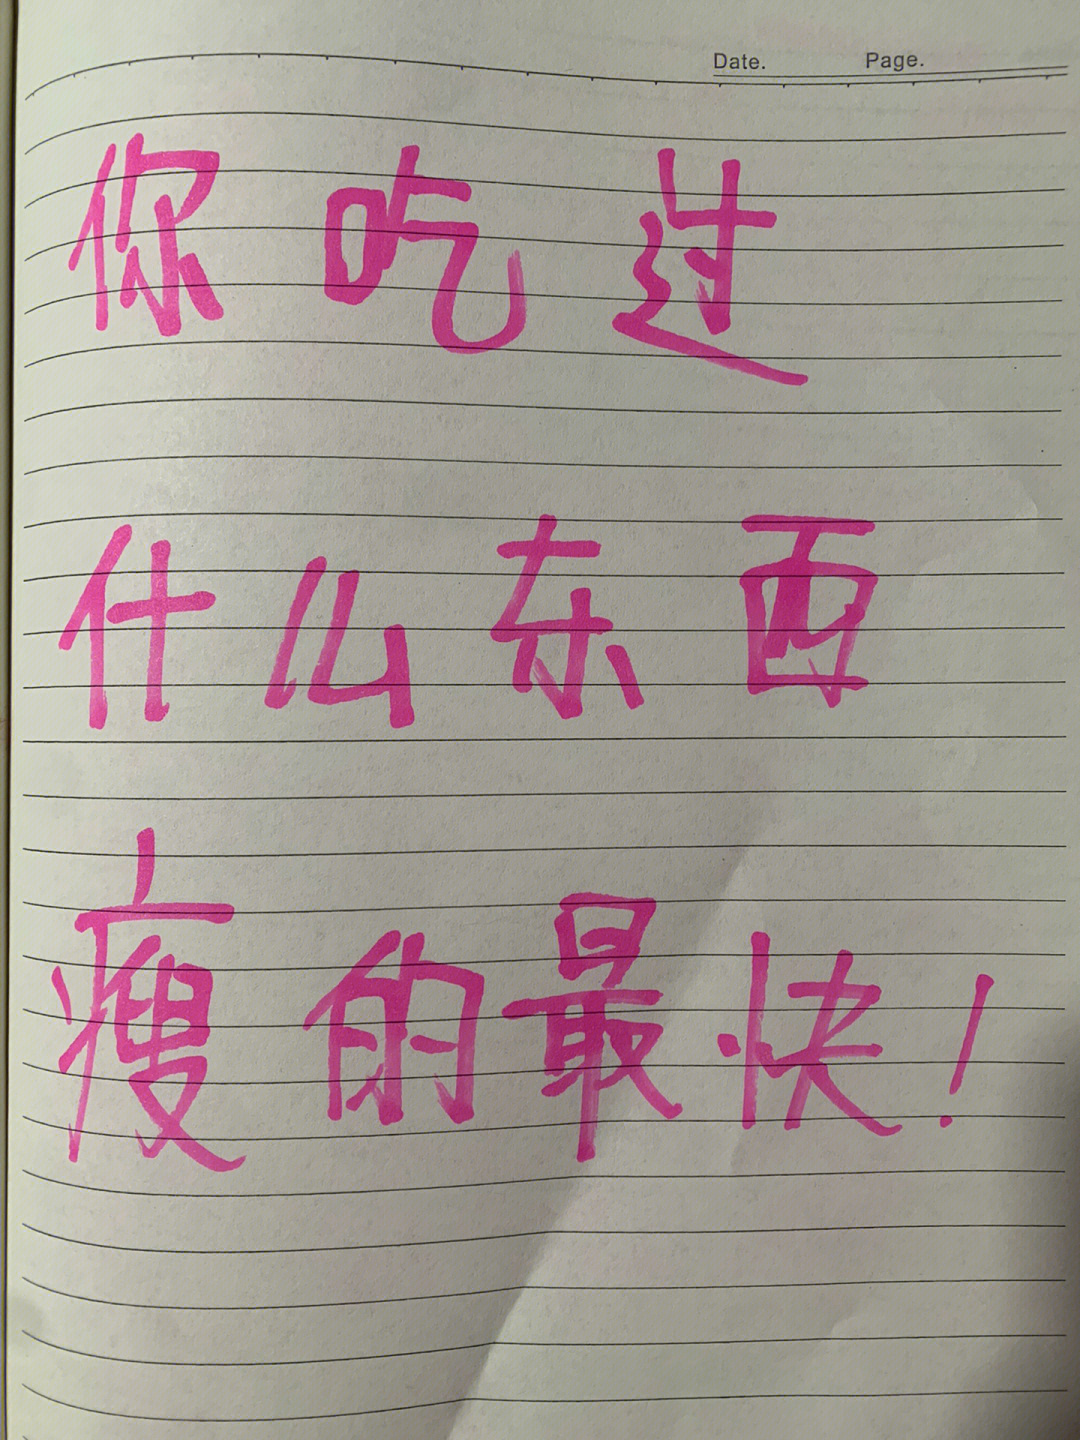 Date. Page.
你吃过
什么东西
瘦的最快！